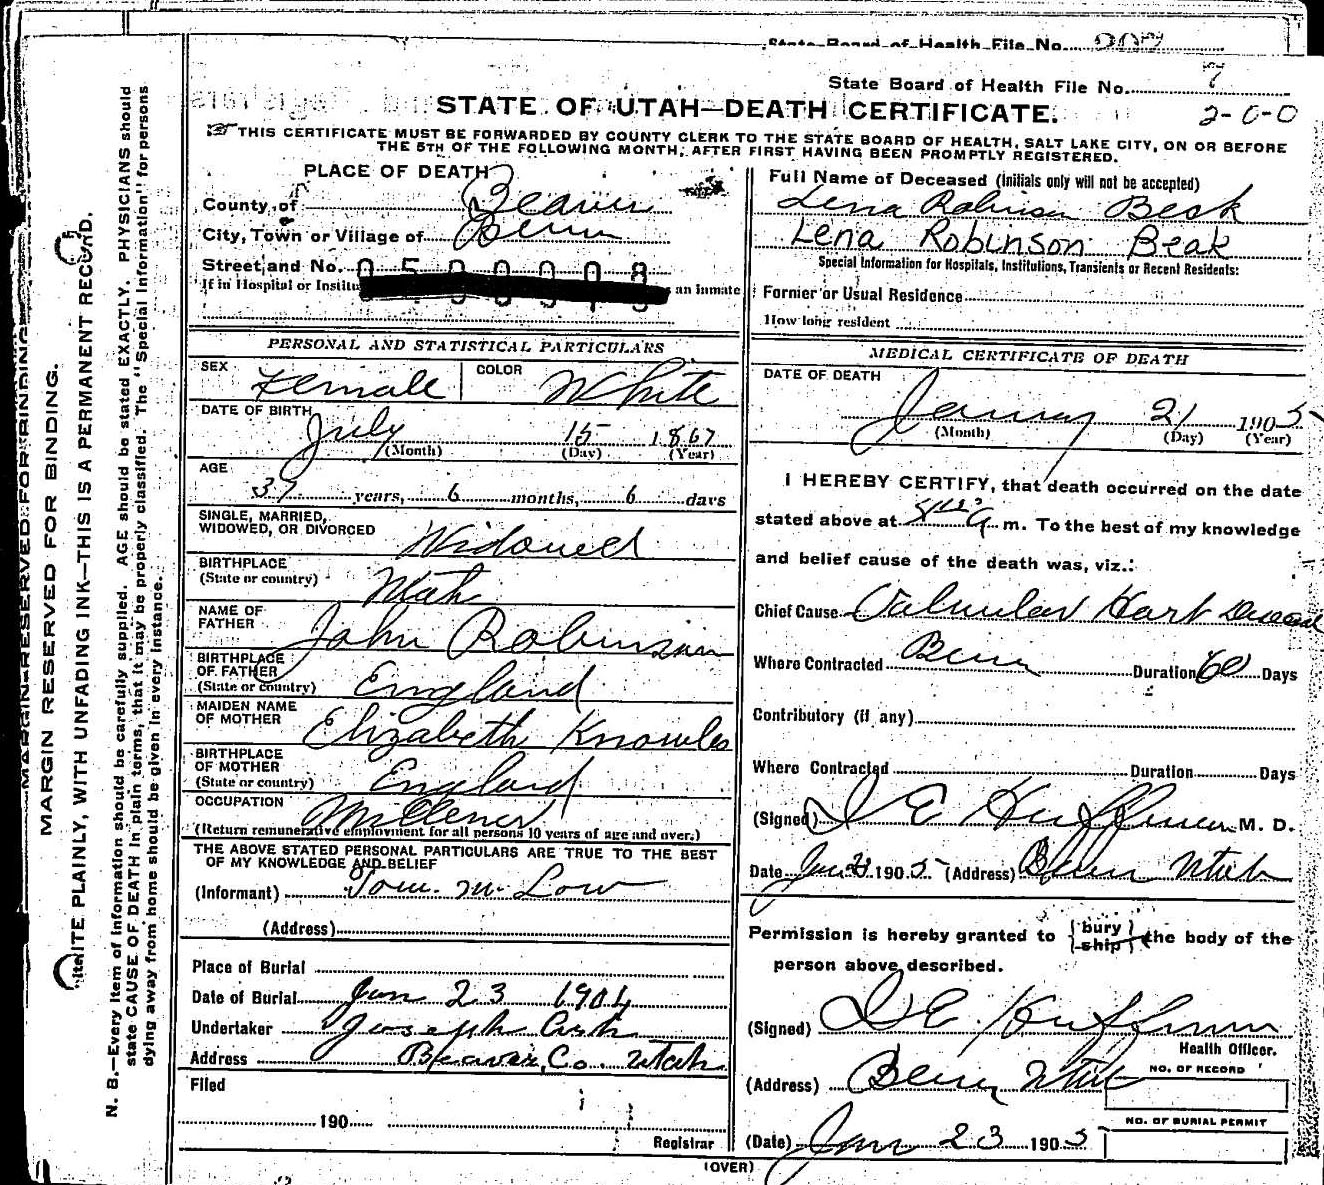 State Board of Health File No. 207
State Board of Health File No. 7
STATE OF UTAH—DEATH CERTIFICATE.
2-0-0
THIS CERTIFICATE MUST BE FORWARDED BY COUNTY CLERK TO THE STATE BOARD OF HEALTH, SALT LAKE CITY, ON OR BEFORE
THE 5TH OF THE FOLLOWING MONTH, AFTER FIRST HAVING BEEN PROMPTLY REGISTERED.
PLACE OF DEATH
County of Beaver
City, Town or Village of Beaver
Street and No.
If in Hospital or Institu an inmate
PERSONAL AND STATISTICAL PARTICULARS
SEX Female COLOR White
DATE OF BIRTH
July 15 1867
(Month) (Day) (Year)
AGE
37 years, 6 months, 6 days
SINGLE, MARRIED,
WIDOWED, OR DIVORCED Widowed
BIRTHPLACE
(State or country) Utah
NAME OF
FATHER John Robinson
BIRTHPLACE
OF FATHER
(State or country) England
MAIDEN NAME
OF MOTHER Elizabeth Knowles
BIRTHPLACE
OF MOTHER
(State or country) England
OCCUPATION Millener
(Return remunerative employment for all persons 10 years of age and over.)
THE ABOVE STATED PERSONAL PARTICULARS ARE TRUE TO THE BEST
OF MY KNOWLEDGE AND BELIEF
(Informant)
(Address)
Place of Burial
Date of Burial Jan 23 1904
Undertaker Joseph
Address Beaver, Co. Utah
Filed
190
Registrar
Full Name of Deceased (Initials only will not be accepted)
Lena Robinson Beak
Lena Robinson Beak
Special Information for Hospitals, Institutions, Transients or Recent Residents:
Former or Usual Residence
How long resident
MEDICAL CERTIFICATE OF DEATH
DATE OF DEATH
January 21 1905
(Month) (Day) (Year)
I HEREBY CERTIFY, that death occurred on the date
stated above at A m. To the best of my knowledge
and belief cause of the death was, viz.:
Chief Cause Valvular Hart
Where Contracted Beaver Duration 60 Days
Contributory (if any)
Where Contracted Duration Days
(Signed) Huffman M. D.
Date Jan 1905 (Address) Beaver Utah
Permission is hereby granted to bury ship the body of the
person above described.
(Signed) Huffman
Health Officer.
(Address) Beaver Utah
NO. OF RECORD
NO. OF BURIAL PERMIT
(Date) Jan 23 1905
(OVER)
MARGIN RESERVED FOR BINDING
MARGIN RESERVED FOR BINDING.
WRITE PLAINLY, WITH UNFADING INK—THIS IS A PERMANENT RECORD.
N. B.—Every item of information should be carefully supplied. AGE should be stated EXACTLY. PHYSICIANS should
state CAUSE OF DEATH in plain terms, that it may be properly classified. The "Special Information" for persons
dying away from home should be given in every instance.